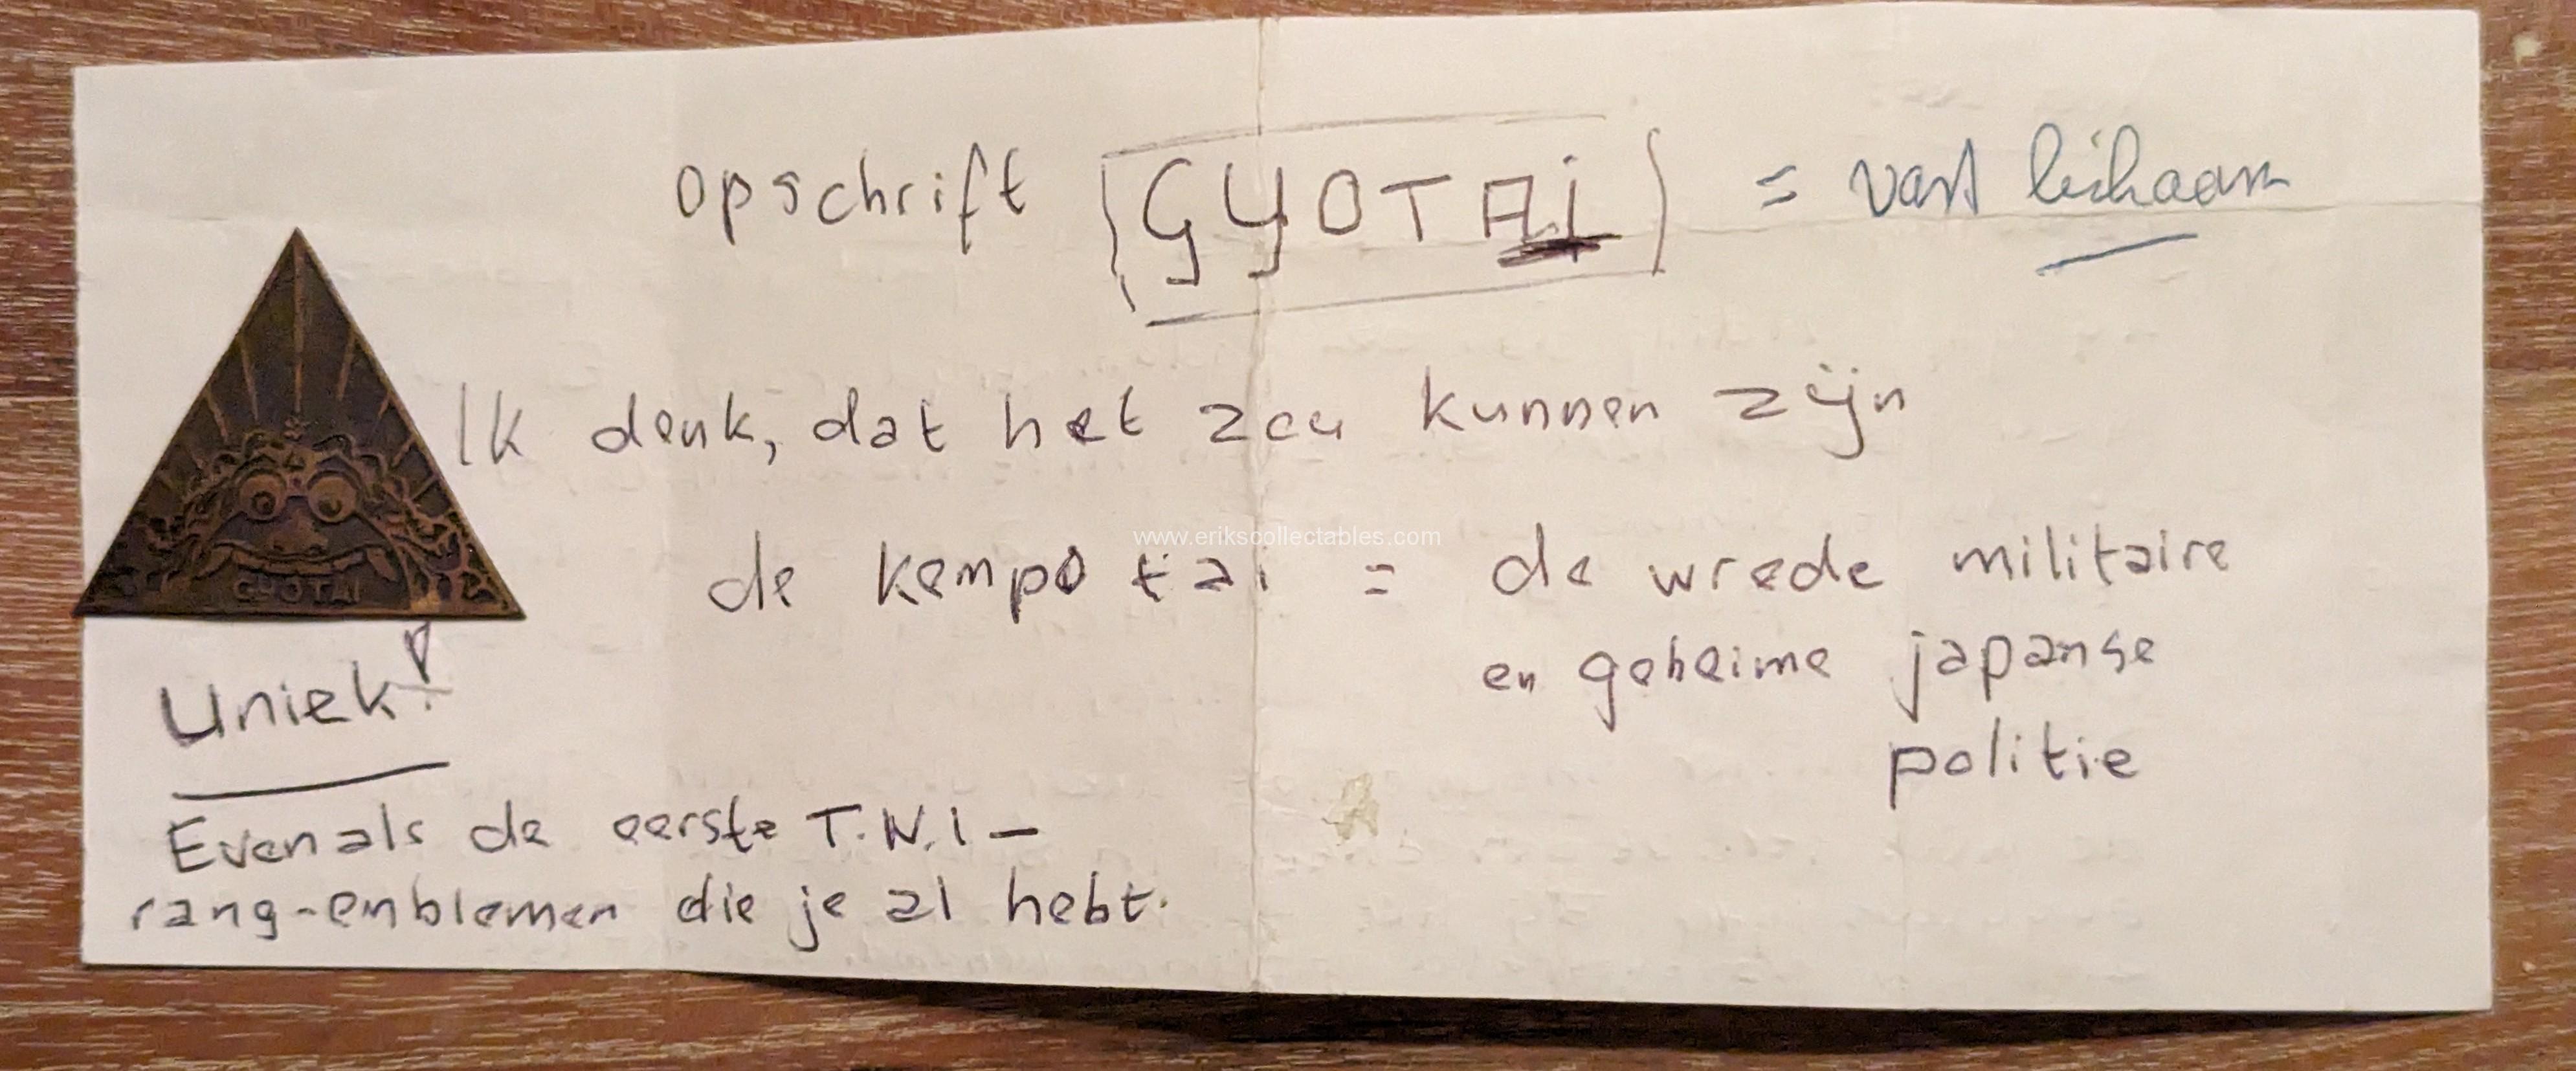 opschrift (GYOTAi) = vast lichaam
Ik denk, dat het zou kunnen zijn
de kempo tai = de wrede militaire
en geheime japanse
politie
GYOTAI
Uniek!
Evenals de eerste T.N.I –
rang-emblemen die je al hebt.
www.erikscollectables.com